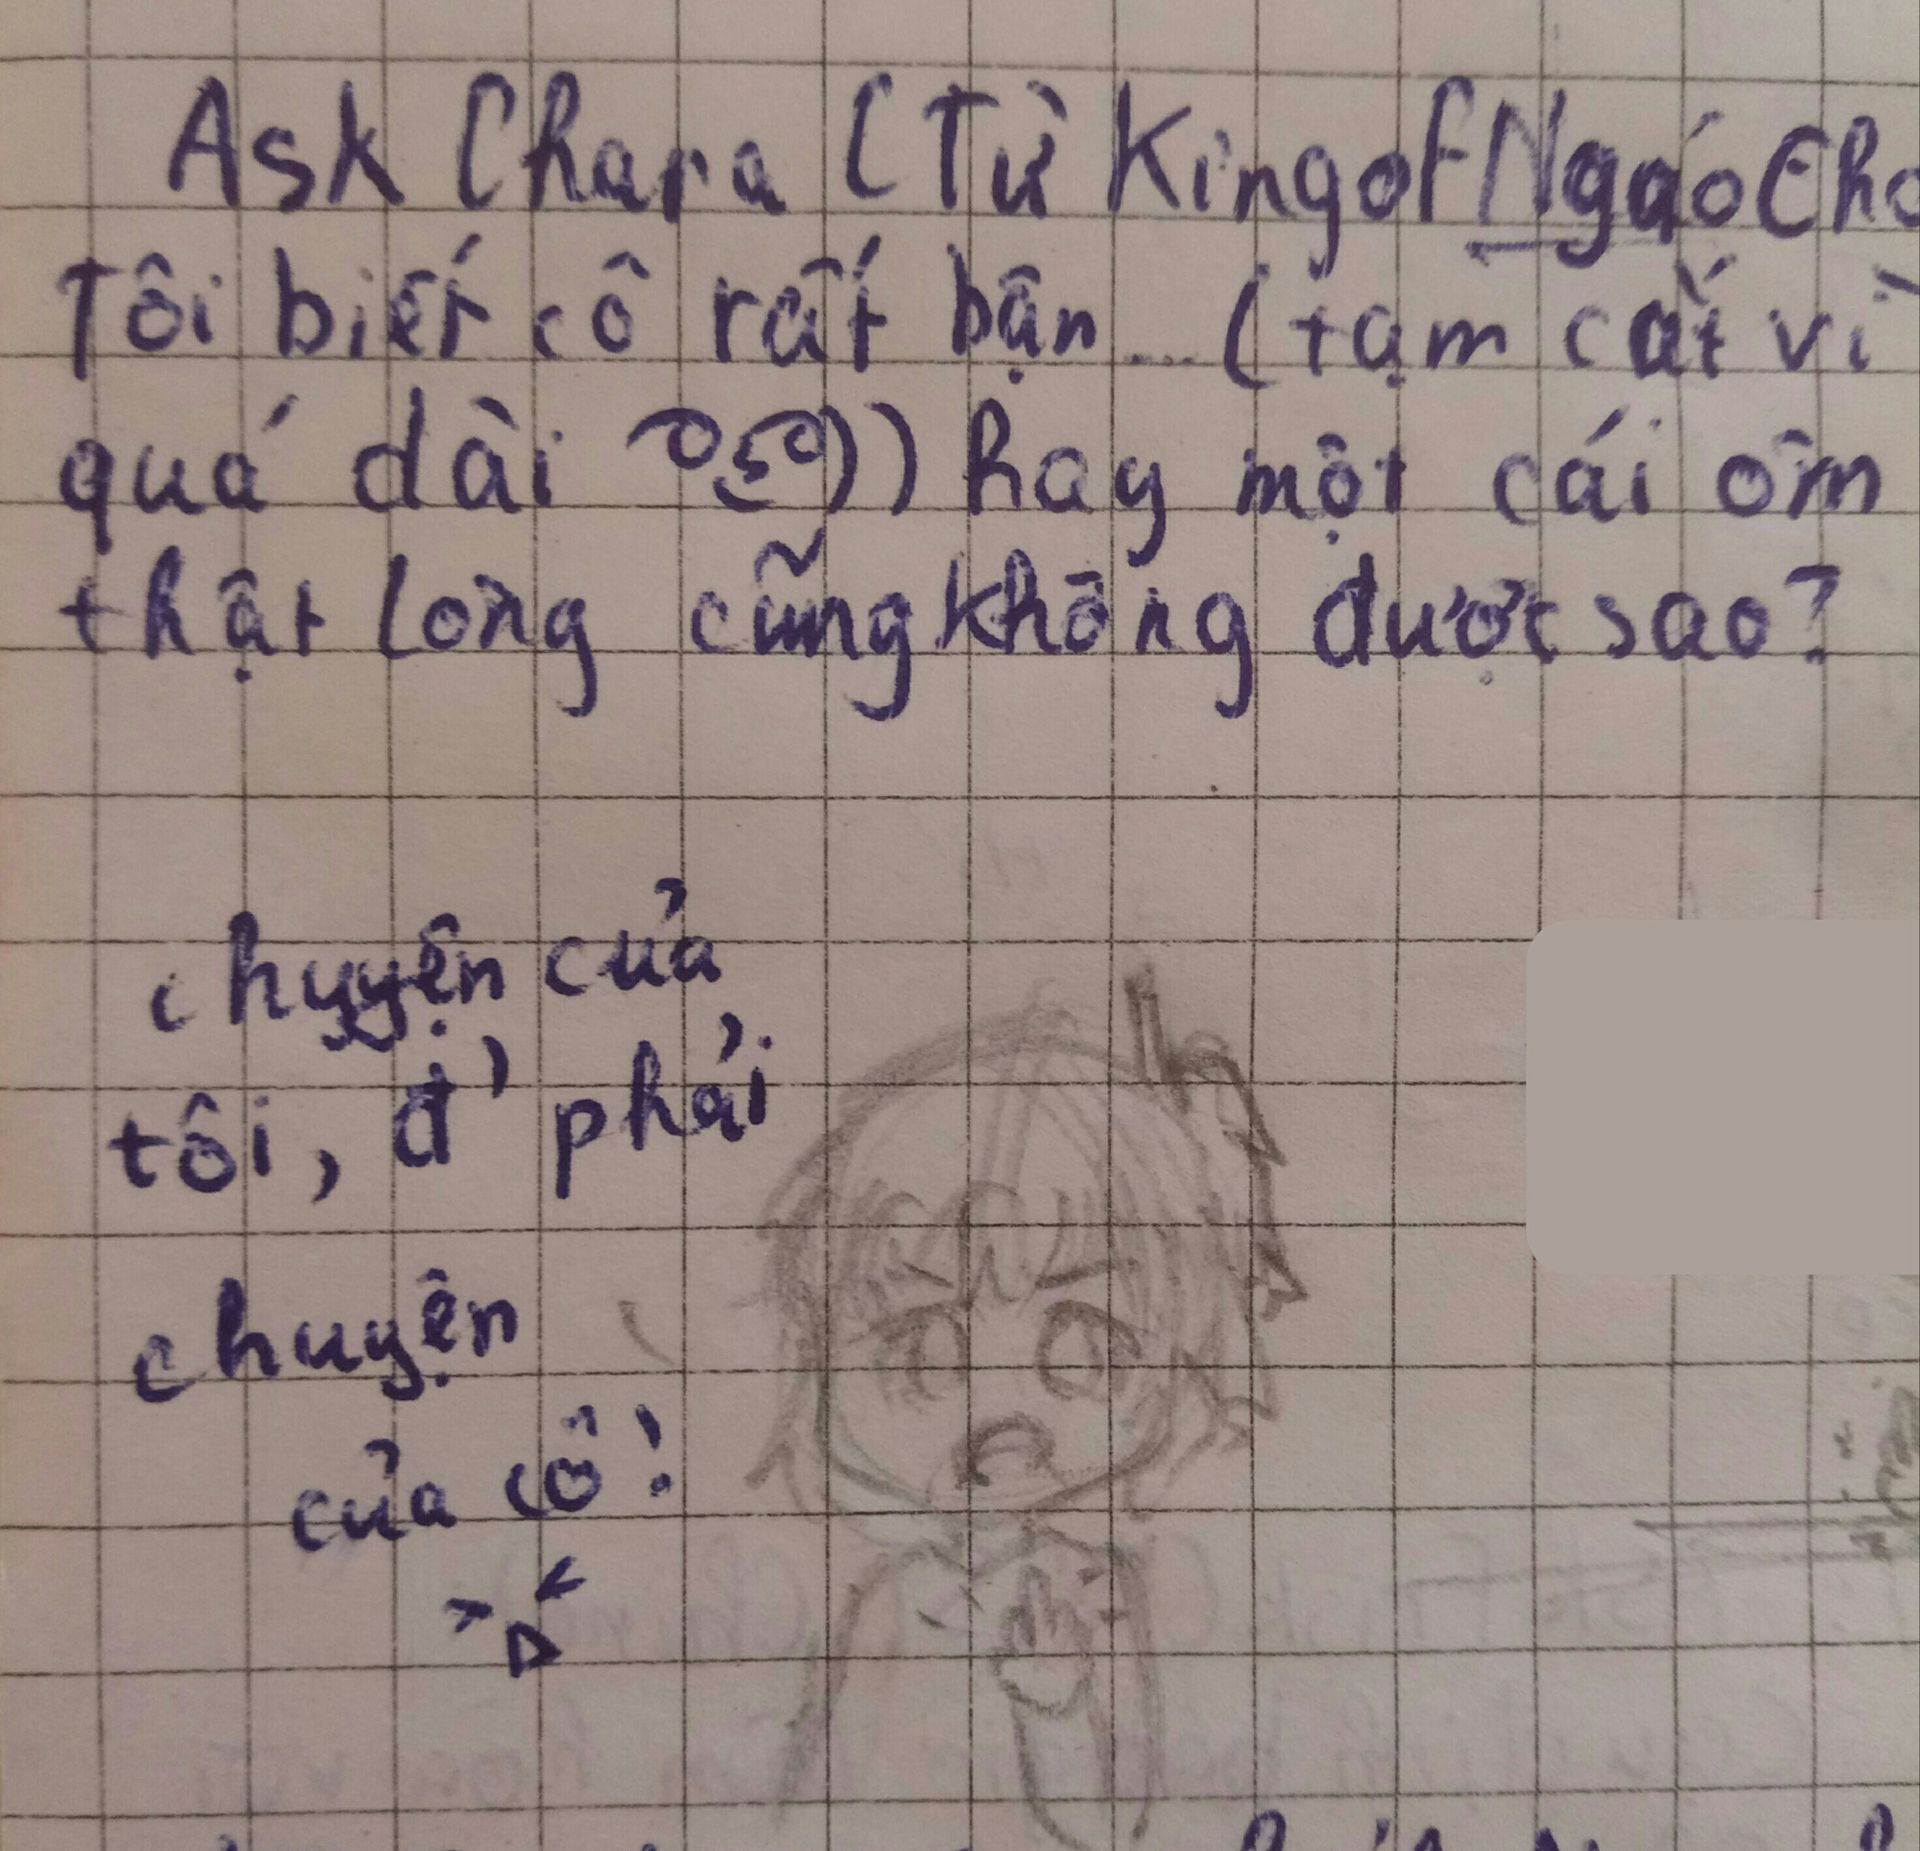 Ask Chara (Từ KingofNgáoCho
Tôi biết cô rất bận... (tạm cắt vì
quá dài )) hay một cái ôm
thật lòng cũng không được sao?
chuyện của
tôi, đ' phải
chuyện
của cô!